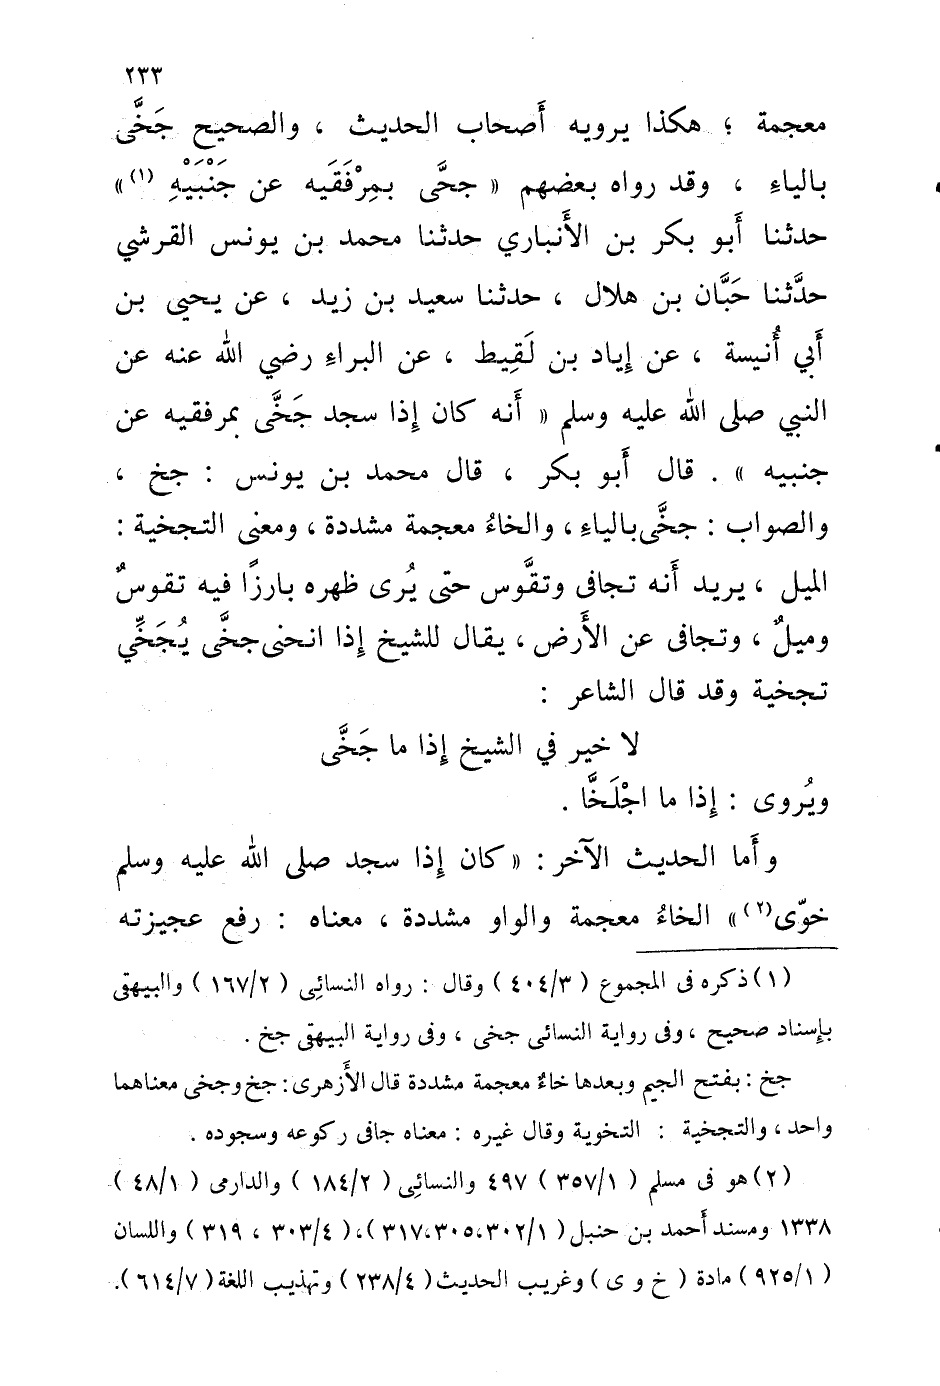 ٢٣٣
معجمة ؛ هكذا يرويه أَصحاب الحديث ، والصحيح جَخَّى
بالياءِ ، وقد رواه بعضهم « جحَّى بمِرْفَقَيه عن جَنْبَيْهِ (١) »
حدثنا أَبو بكر بن الأَنباري حدثنا محمد بن يونس القرشي
حدَّثنا حَبَّان بن هلال ، حدثنا سعيد بن زيد ، عن يحيى بن
أَبي أُنيسة ، عن إِياد بن لَقِيط ، عن البراءِ رضي الله عنه عن
النبي صلى الله عليه وسلم « أَنه كان إِذا سجد جَخَّى بمرفقيه عن
جنبيه » . قال أَبو بكر ، قال محمد بن يونس : جخ ،
والصواب : جخَّى بالياءِ ، والخاءُ معجمة مشددة ، ومعنى التجخية :
الميل ، يريد أَنه تجافى وتقَّوس حتى يُرى ظهره بارزًا فيه تقوسٌ
وميلٌ ، وتجافى عن الأَرض ، يقال للشيخ إِذا انحنى جخَّى يُجَخِّي
تجخية وقد قال الشاعر :
لا خير في الشيخ إِذا ما جَخَّى
ويُروى : إِذا ما اجْلَخَّا .
وأَما الحديث الآخر : « كان إِذا سجد صلى الله عليه وسلم
خوّى (٢) » الخاءُ معجمة والواو مشددة ، معناه : رفع عجيزته
(١) ذكره فى المجموع ( ٤٠٤/٣ ) وقال : رواه النسائي ( ١٦٧/٢ ) والبيهقى
بإسناد صحيح ، وفى رواية النسائى جخى ، وفى رواية البيهقى جخ .
جخ : بفتح الجيم وبعدها خاءٌ معجمة مشددة قال الأَزهرى : جخ وجخى معناهما
واحد ، والتجخية : التخوية وقال غيره : معناه جافى ركوعه وسجوده .
(٢) هو فى مسلم ( ٣٥٧/١ ) ٤٩٧ والنسائي ( ١٨٤/٢ ) والدارمى ( ٤٨/١ )
١٣٣٨ ومسند أَحمد بن حنبل ( ٣٠٢/١ ،٣٠٥ ،٣١٧ )، ( ٣٠٣/٤ ، ٣١٩ ) واللسان
( ٩٢٥/١ ) مادة ( خ و ى ) وغريب الحديث ( ٢٣٨/٤ ) وتهذيب اللغة ( ٦١٤/٧ ).